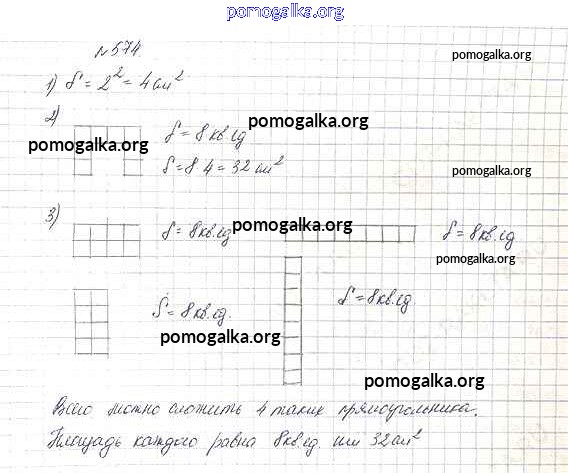 pomogalka.org
№574
pomogalka.org
1) S = 2² = 4 см²
2)
pomogalka.org
S = 8 кв. ед
pomogalka.org
S = 8·4 = 32 см²
pomogalka.org
3)
S = 8 кв. ед
pomogalka.org
S = 8 кв. ед
pomogalka.org
S = 8 кв. ед.
S = 8 кв. ед
pomogalka.org
pomogalka.org
Всего можно сложить 4 таких прямоугольника.
Площадь каждого равна 8 кв. ед. или 32 см²